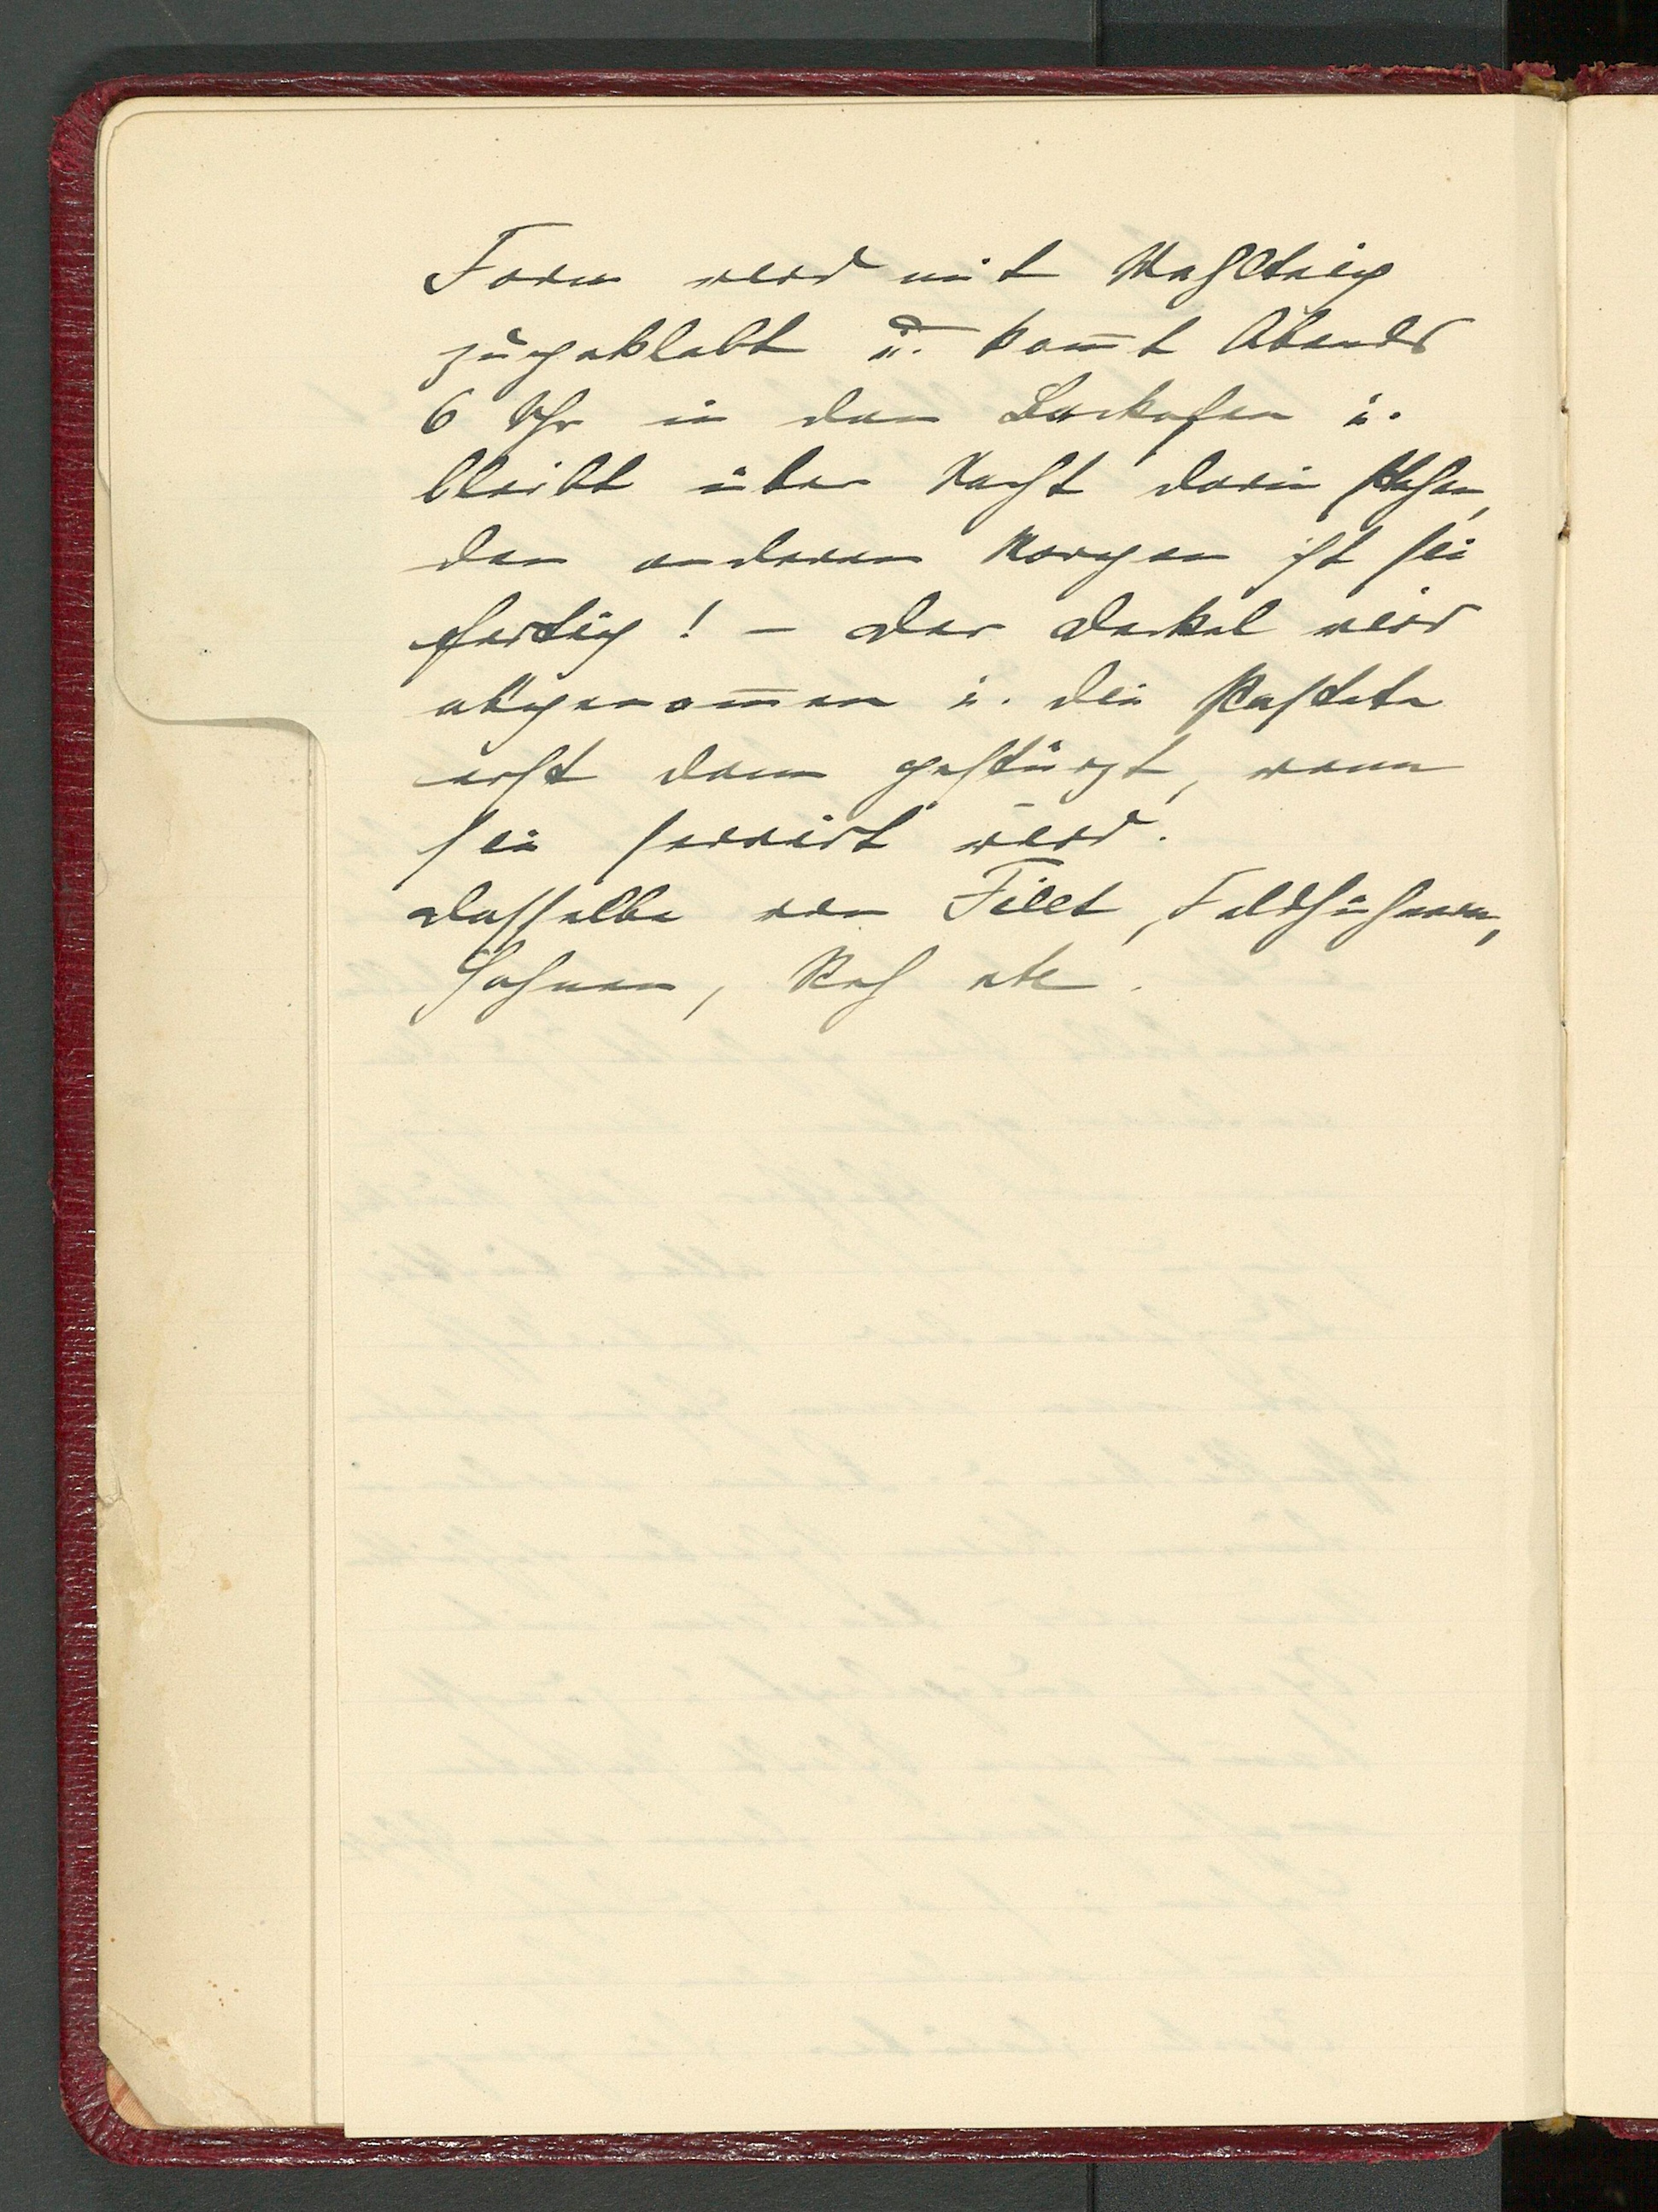 Form wird mit Mehlteig
zugeklebt u. kom̅t Abends
6 Uhr in den Backofen u.
bleibt über Nacht darin stehen,
den anderen Morgen ist sie
fertig! – Der Deckel wird
abgenom̅en u. die Pastete
erst dann gestürzt, wenn
sie servirt wird.
Dasselbe von Filet, Feldhühnern,
Hasen, Reh etc.